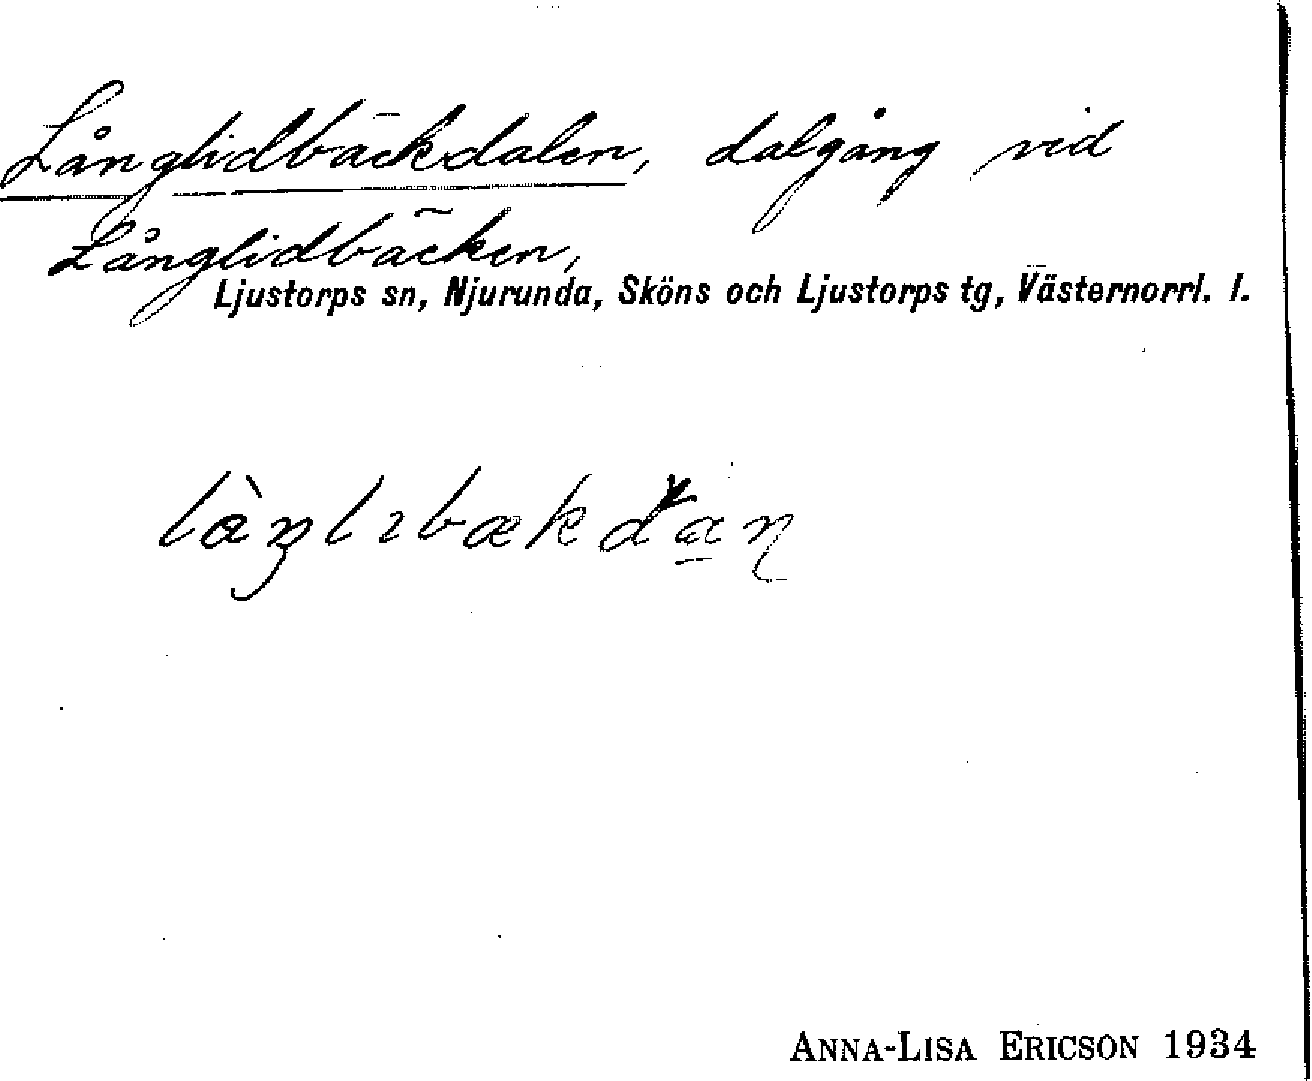 Långlidbäckdalen, dalgång vid
Långlidbäcken,
Ljustorps sn, Njurunda, Sköns och Ljustorps tg, Västernorrl. l.
ANNA-LISA ERICSON 1934